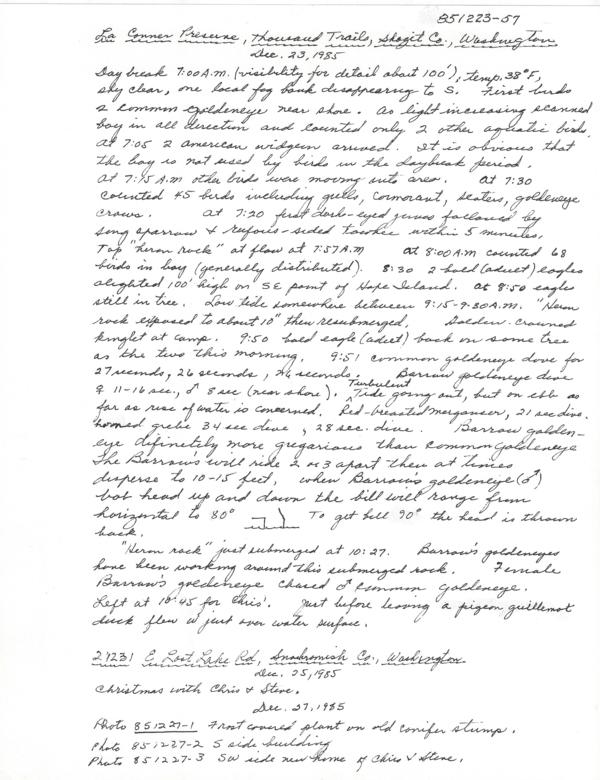 851223-57
La Conner Preserve, Thousand Trails, Skagit Co., Washington
Dec. 23, 1985
Daybreak 7:00 A.M. (visibility for detail about 100'), temp. 38°F,
sky clear, one local fog bank disappearing to S. First birds
2 common goldeneye near shore. As light increasing scanned
bay in all direction and counted only 2 other aquatic birds.
At 7:05 2 American widgeon arrived. It is obvious that
the bay is not used by birds in the daybreak period.
At 7:15 A.M other birds were moving into area. At 7:30
counted 45 birds including gulls, cormorant, scaters, goldeneye
crows. at 7:20 first dark-eyed junco followed by
song sparrow & rufous-sided towhee within 5 minutes.
Top "heron rock" at flow at 7:57 A.M at 8:00 A.M counted 68
birds in bay (generally distributed). 8:30 2 bald (adult) eagles
alighted 100' high on SE point of Hope Island. at 8:50 eagles
still in tree. Low tide somewhere between 9:15-9:30 A.M. "Heron
rock exposed to about 10" then resubmerged. Golden-crowned
kinglet at camp. 9:50 bald eagle (adult) back on same tree
as the two this morning. 9:51 common goldeneye dove for
27 seconds, 26 seconds, 26 seconds. Barrow goldeneye dive
♀ 11-16 sec., ♂ 8 sec (near shore). Turbulent Tide going out, but on ebb as
far as rise of water is concerned. Red-breasted merganser, 21 sec dive.
horned grebe 34 sec dive, 28 sec. dive. Barrow golden-
eye difinitely more gregarious than common goldeneye
The Barrow's will ride 2 or 3 apart then at times
disperse to 10-15 feet. when Barrows goldeneye (♂)
bob head up and down the bill will range from
horizontal to 80° To get bill 90° the head is thrown
back.
"Heron rock" just submerged at 10:27. Barrow's goldeneyes
have been working around this submerged rock. Female
Barrow's goldeneye chased ♂ common goldeneye.
Left at 10:45 for Chris'. Just before leaving a pigeon guillemot
duck flew w just over water surface.
27231 E Lost Lake Rd, Snohomish Co., Washington
Dec. 25, 1985
Christmas with Chris & Steve.
Dec. 27, 1985
Photo 851227-1 Frost covered plant on old conifer stump.
Photo 851227-2 S side building
Photo 851227-3 SW side new home of Chris & Steve.